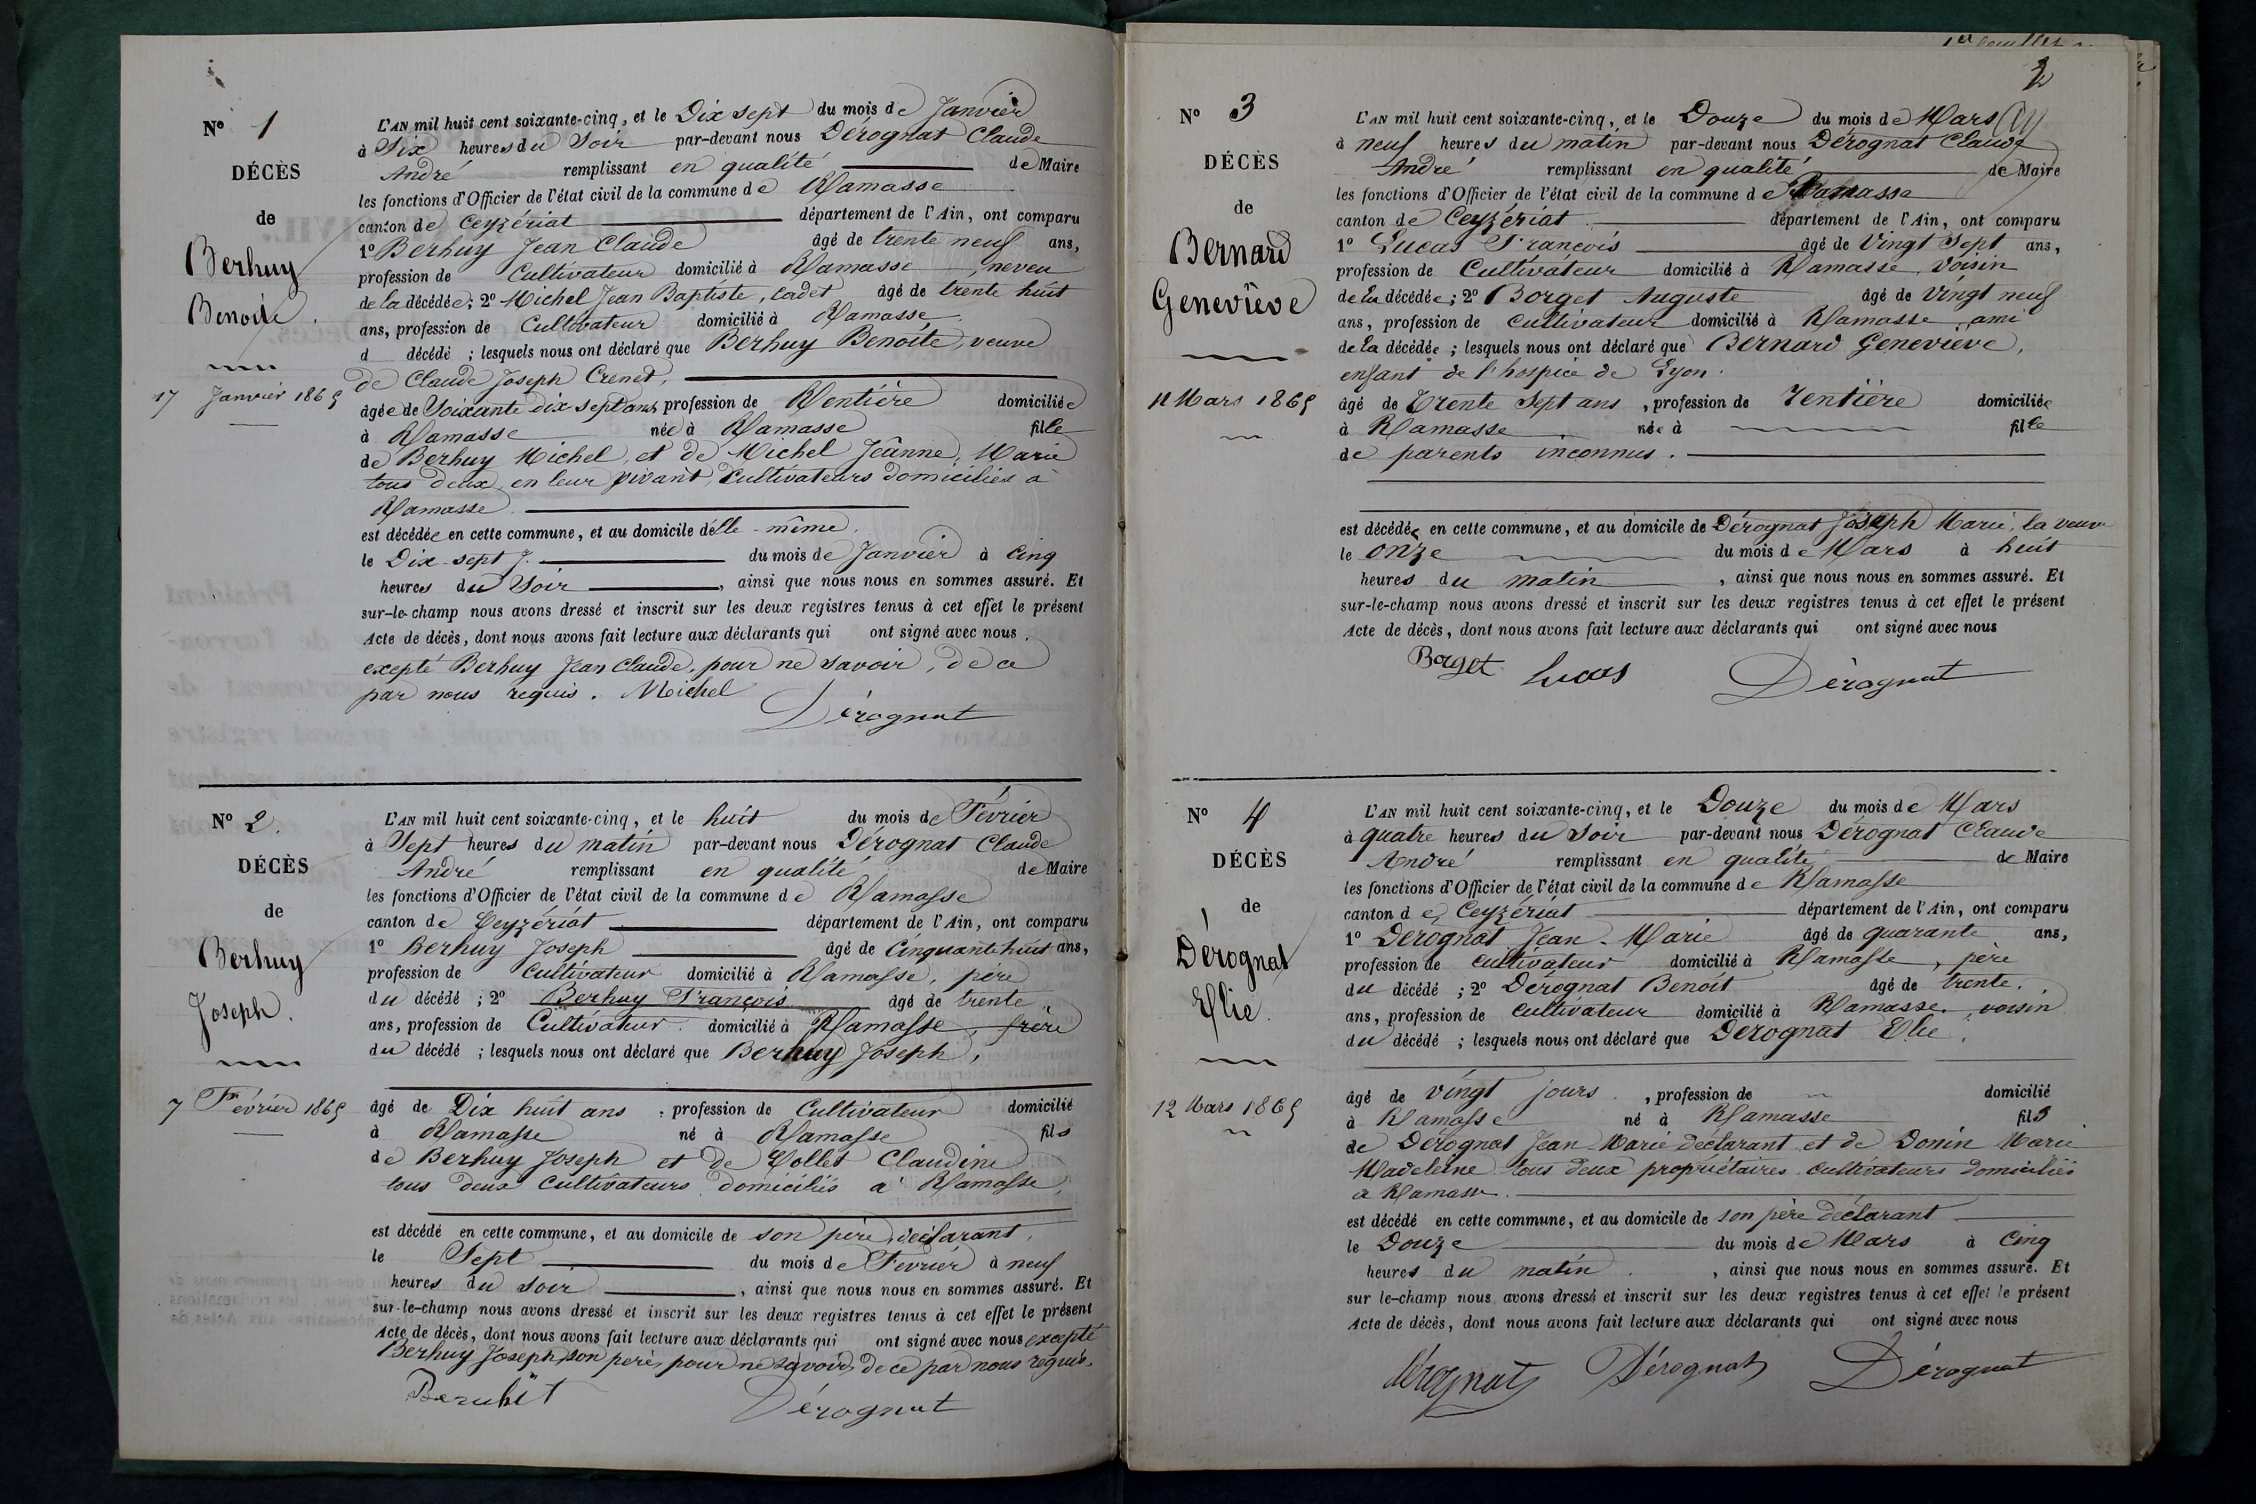 N° 1
DÉCÈS
de
Berhuy
Benoite.
17 Janvier 1865
L'AN mil huit cent soixante-cinq, et le Dix sept du mois de Janvier
à Six heures du Soir par-devant nous Dérognat Claude
André remplissant en qualité de Maire
les fonctions d'Officier de l'état civil de la commune de Ramasse
canton de Ceyzériat département de l'Ain, ont comparu
1° Berhuy Jean Claude âgé de trente neuf ans,
profession de Cultivateur domicilié à Ramasse, neveu
de la décédée; 2° Michel Jean Baptiste, cadet âgé de trente huit
ans, profession de Cultivateur domicilié à Ramasse.
d décédé ; lesquels nous ont déclaré que Berhuy Benoite, veuve
de Claude Joseph Crenet,
âgée de Soixante dix sept ans profession de Rentière domiciliée
à Ramasse née à Ramasse fille
de Berhuy Michel, et de Michel Jeanne, Marie
tous deux en leur vivant, Cultivateurs domiciliés à
Ramasse
est décédée en cette commune, et au domicile d'elle-même.
le Dix-sept J. du mois de Janvier à Cinq
heures du Soir, ainsi que nous nous en sommes assuré. Et
sur-le-champ nous avons dressé et inscrit sur les deux registres tenus à cet effet le présent
Acte de décès, dont nous avons fait lecture aux déclarants qui ont signé avec nous.
excepté Berhuy Jean Claude, pour ne savoir, de ce
par nous requis. Michel
Dérognat
N° 2.
DÉCÈS
de
Berhuy
Joseph.
7 Février 1865
L'AN mil huit cent soixante-cinq, et le huit du mois de Février
à Sept heures du matin par-devant nous Dérognat Claude
André remplissant en qualité de Maire
les fonctions d'Officier de l'état civil de la commune de Ramasse
canton de Ceyzériat département de l'Ain, ont comparu
1° Berhuy Joseph âgé de Cinquante huit ans,
profession de Cultivateur domicilié à Ramasse, père
du décédé ; 2° Berhuy François âgé de trente
ans, profession de Cultivateur. domicilié à Ramasse, frère
du décédé ; lesquels nous ont déclaré que Berhuy Joseph,
âgé de Dix huit ans, profession de Cultivateur domicilié
à Ramasse né à Ramasse fils
de Berhuy Joseph et de Collet Claudine
tous deux Cultivateurs domiciliés à Ramasse,
est décédé en cette commune, et au domicile de son père, déclarant,
le Sept du mois de Février à neuf
heures du soir, ainsi que nous nous en sommes assuré. Et
sur-le-champ nous avons dressé et inscrit sur les deux registres tenus à cet effet le présent
Acte de décès, dont nous avons fait lecture aux déclarants qui ont signé avec nous excepté
Berhuy Joseph, son père, pour ne savoir, de ce par nous requis.
Dérognat
2
N° 3
DÉCÈS
de
Bernard
Geneviève
11 Mars 1865
L'AN mil huit cent soixante-cinq, et le Douze du mois de Mars
à neuf heures du matin par-devant nous Dérognat Claude
André remplissant en qualité de Maire
les fonctions d'Officier de l'état civil de la commune de Ramasse
canton de Ceyzériat département de l'Ain, ont comparu
1° Lucas François âgé de Vingt Sept ans,
profession de Cultivateur domicilié à Ramasse, Voisin
de la décédée; 2° Borget Auguste âgé de Vingt neuf
ans, profession de Cultivateur domicilié à Ramasse, ami
de la décédée ; lesquels nous ont déclaré que Bernard Geneviève,
enfant de l'hospice de Lyon.
âgé de Trente Sept ans, profession de rentière domiciliée
à Ramasse née à fille
de parents inconnus.
est décédée en cette commune, et au domicile de Dérognat Joseph Marie, la veuve
le onze du mois de Mars à huit
heures du matin, ainsi que nous nous en sommes assuré. Et
sur-le-champ nous avons dressé et inscrit sur les deux registres tenus à cet effet le présent
Acte de décès, dont nous avons fait lecture aux déclarants qui ont signé avec nous
Borget Lucas Dérognat
N° 4
DÉCÈS
de
Dérognat
Elie.
12 Mars 1865
L'AN mil huit cent soixante-cinq, et le Douze du mois de Mars
à quatre heures du Soir par-devant nous Dérognat Claude
André remplissant en qualité de Maire
les fonctions d'Officier de l'état civil de la commune de Ramasse
canton de Ceyzériat département de l'Ain, ont comparu
1° Dérognat Jean-Marie âgé de quarante ans,
profession de cultivateur domicilié à Ramasse, père
du décédé ; 2° Dérognat Benoit âgé de trente.
ans, profession de Cultivateur domicilié à Ramasse, voisin
du décédé ; lesquels nous ont déclaré que Dérognat Elie.
âgé de vingt jours, profession de domicilié
à Ramasse né à Ramasse fils
de Dérognat Jean-Marie déclarant et de Donin Marie
Madeleine tous deux propriétaires cultivateurs domiciliés
à Ramasse.
est décédé en cette commune, et au domicile de son père déclarant
le Douze du mois de Mars à Cinq
heures du matin, ainsi que nous nous en sommes assuré. Et
sur le-champ nous avons dressé et inscrit sur les deux registres tenus à cet effet le présent
Acte de décès, dont nous avons fait lecture aux déclarants qui ont signé avec nous
Dérognat Dérognat Dérognat